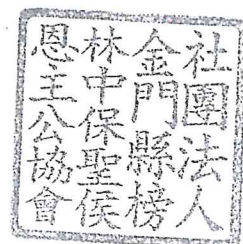 社團法人
金門縣榜
林中保聖侯
恩主公協會